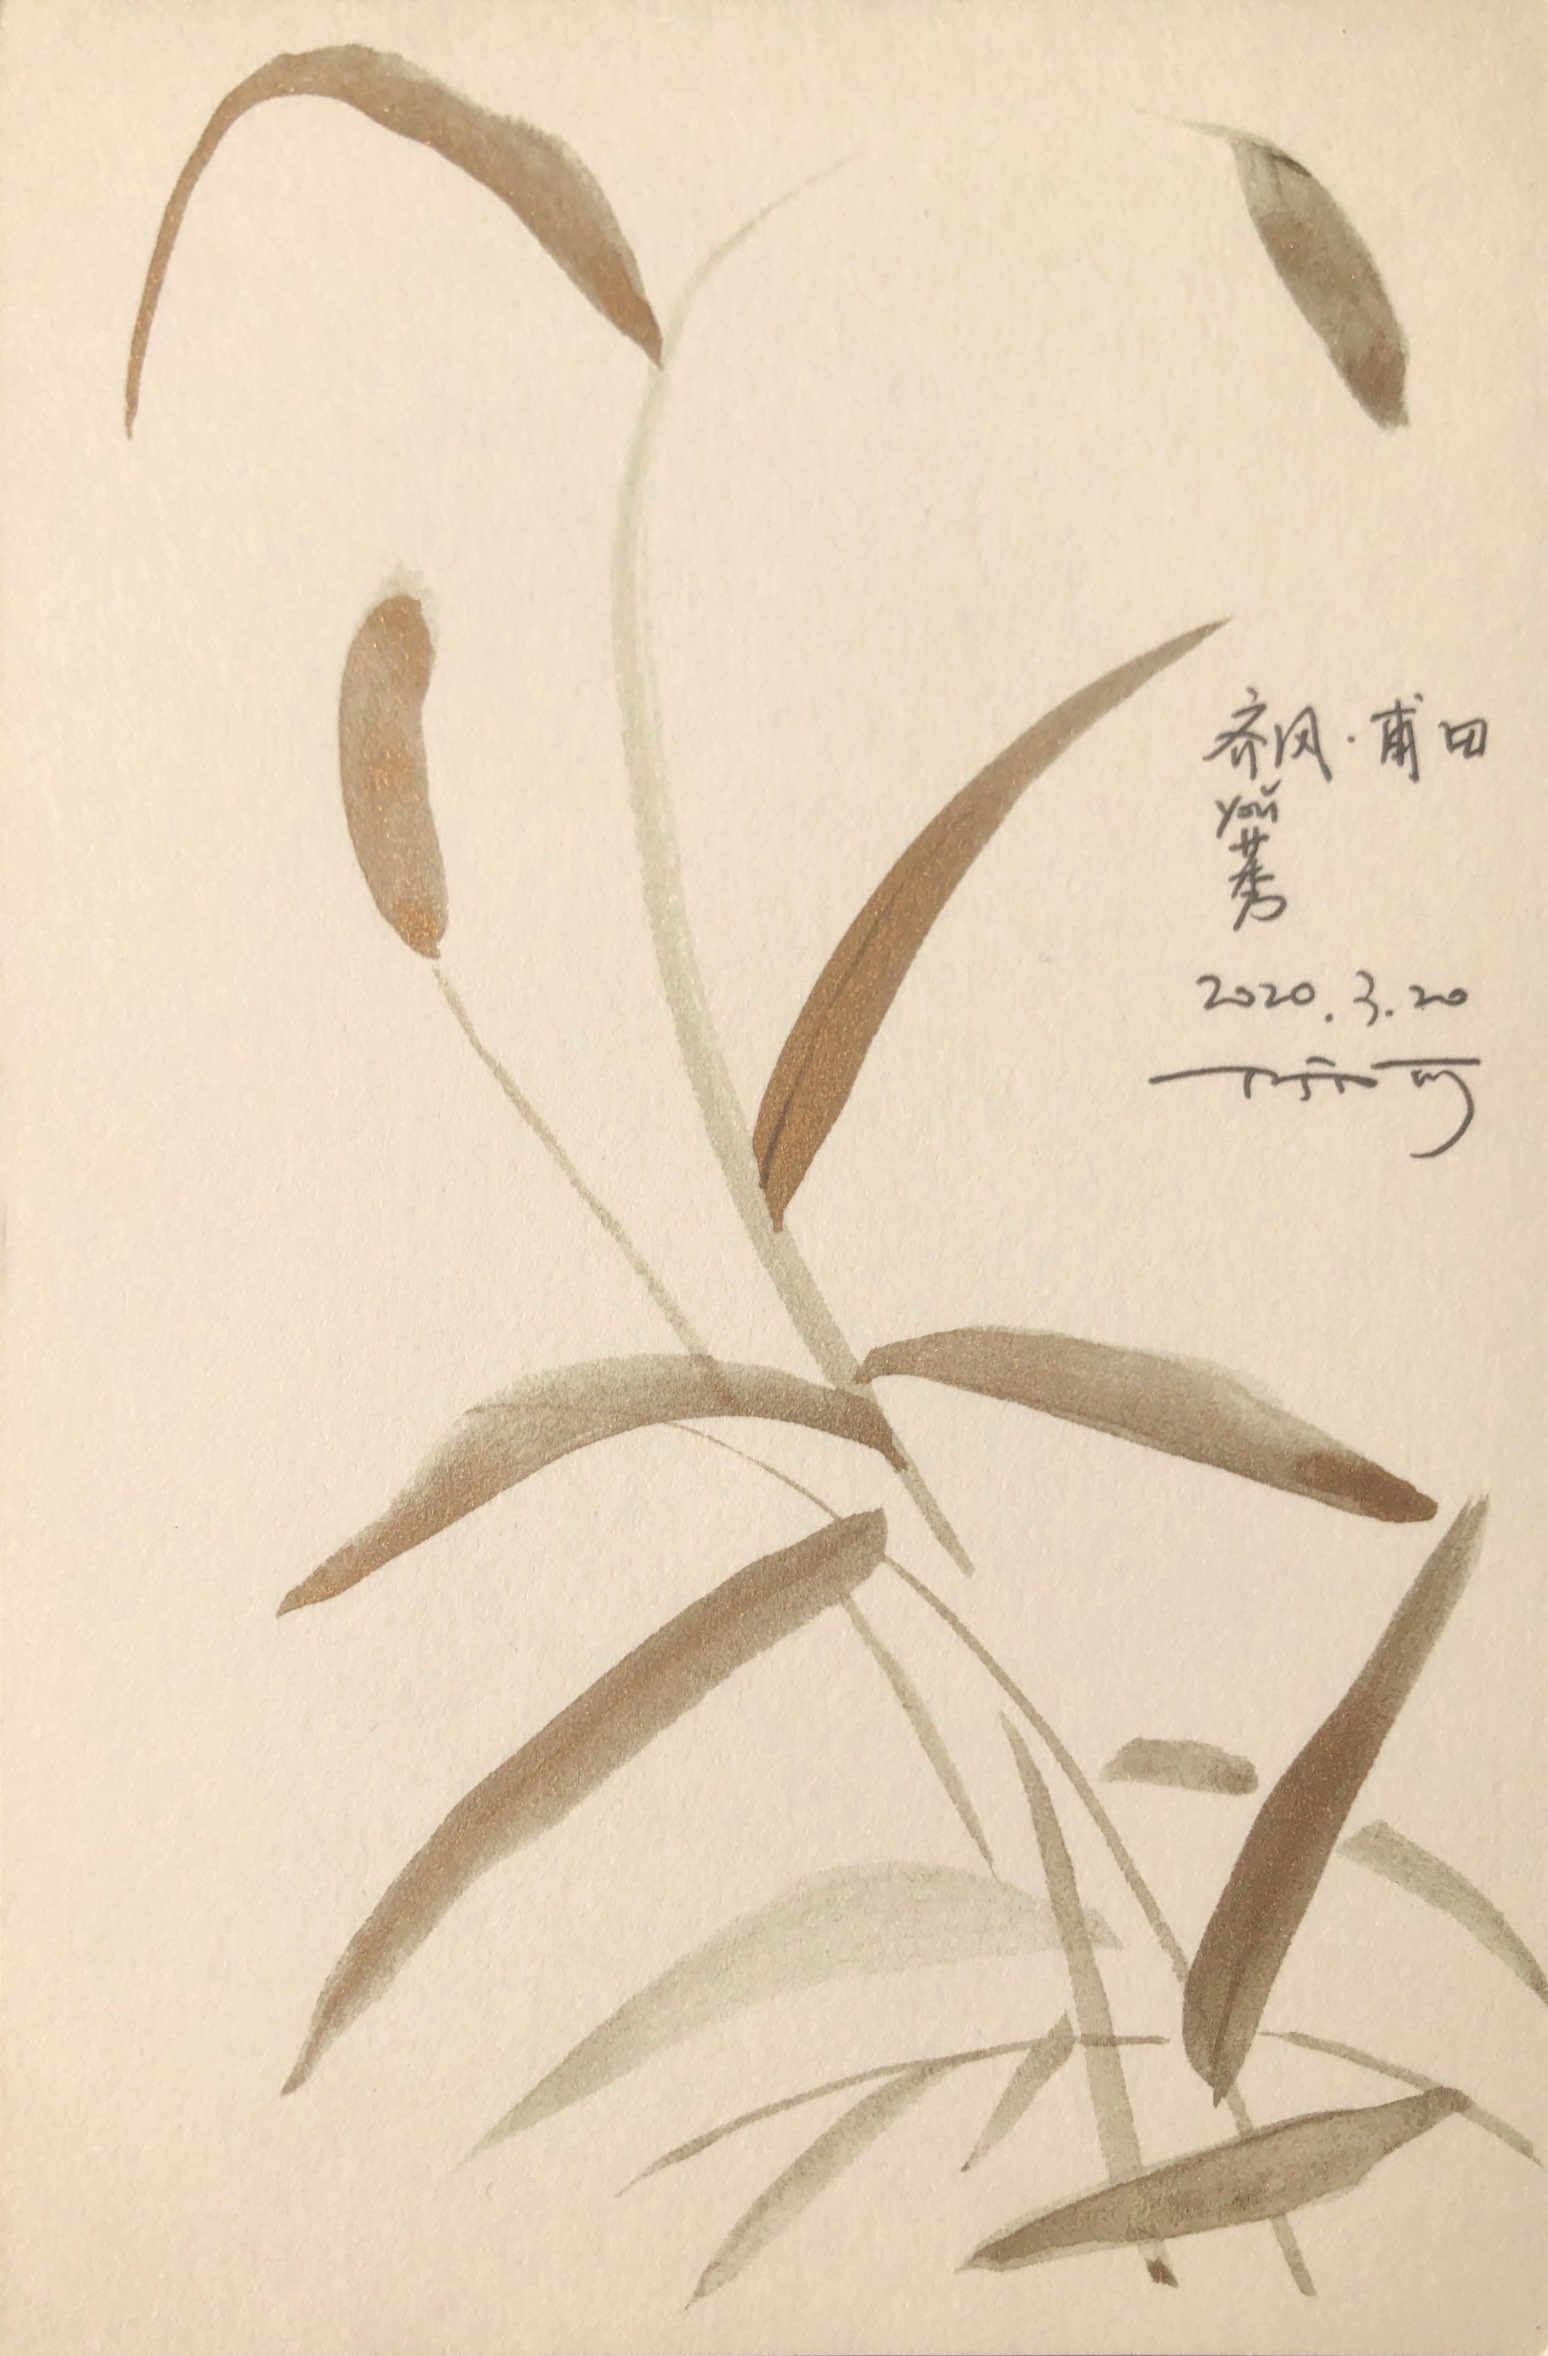 齐风·甫田
yǒu
莠
2020.3.20